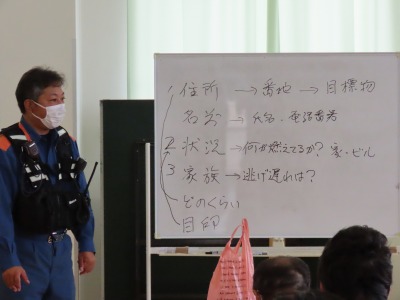 1 住所 → 番地 → 目標物
名前 → 氏名・電話番号
2 状況 → 何が燃えてるか? 家・ビル
3 家族 → 逃げ遅れは?
どのくらい
目印